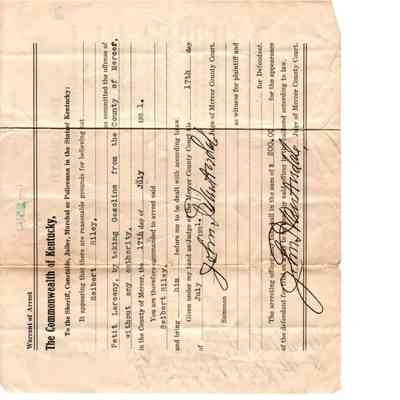 Warrant of Arrest
The Commonwealth of Kentucky,
To the Sheriff, Constable, Jailer, Marshal or Policeman in the State of Kentucky:
It appearing that there are reasonable grounds for believing that
Seibert Riley,
has committed the offense of
Petit Larceny, by taking Gasoline from the County of Mercer,
without any authority,
in the County of Mercer, the 17th day of July 1951.
You are therefore commanded to arrest said
Seibert Riley,
and bring him before me to be dealt with according to law.
Given under my hand as Judge of the Mercer County Court this 17th day
of July 1951.
Judge of Mercer County Court.
Summon
as witness for plaintiff and
for Defendant.
The arresting officer bail in the sum of $ 200.00 for the appearance
of the defendant for trial according to law.
Judge of Mercer County Court.